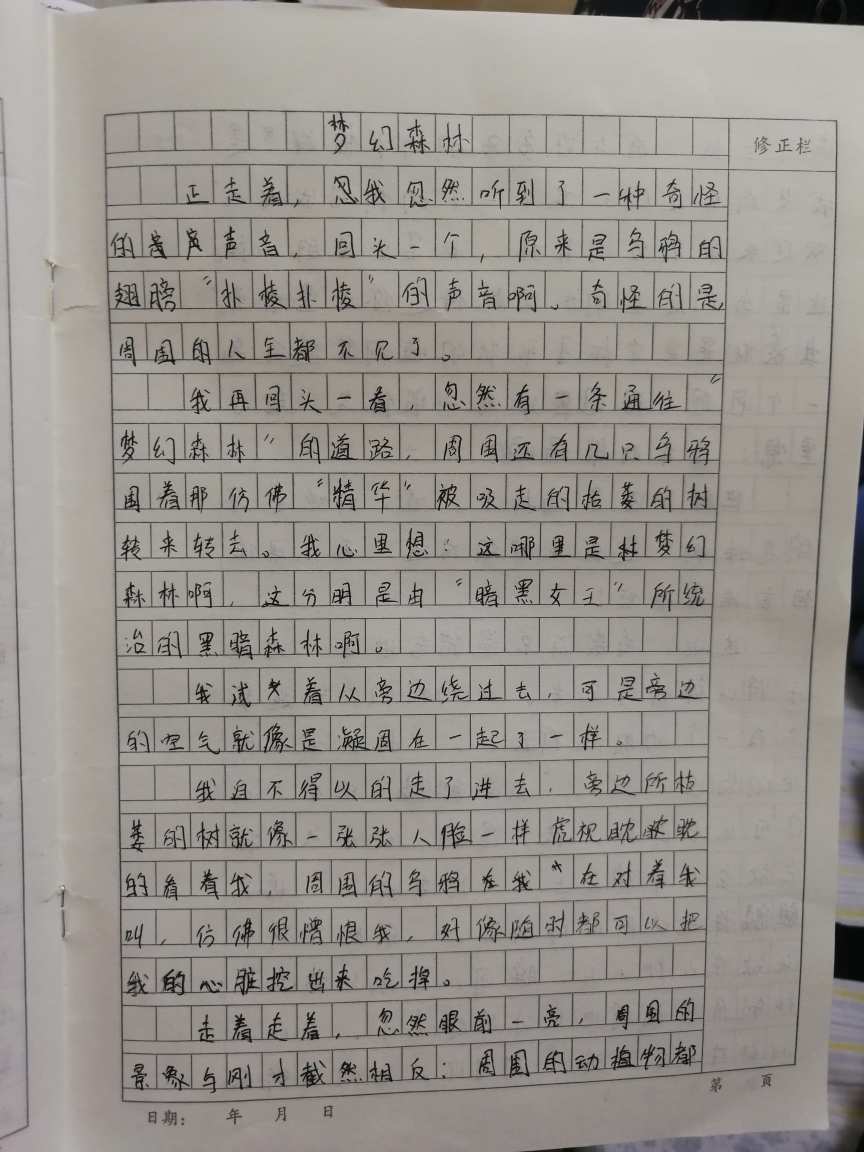 梦幻森林
修正栏
正走着，忽我忽然听到了一种奇怪
的声声音，回头一个，原来是乌鸦的
翅膀“扑棱扑棱”的声音啊。奇怪的是，
周围的人全都不见了。
我再回头一看，忽然有一条通往“
梦幻森林”的道路，周围还有几只乌鸦
围着那仿佛“精华”被吸走的枯萎的树
转来转去。我心里想：这哪里是林梦幻
森林啊，这分明是由“暗黑女王”所统
治的黑暗森林啊。
我试着从旁边绕过去，可是旁边
的空气就像是凝固在一起了一样。
我迫不得以的走了进去，旁边所枯
萎的树就像一张张人脸一样虎视眈眈
的看着我，周围的乌鸦在我在对着我
叫，仿佛很憎恨我，好像随时都可以把
我的心脏挖出来吃掉。
走着走着，忽然眼前一亮，周围的
景象与刚才截然相反：周围的动植物都
第 页
日期： 年 月 日